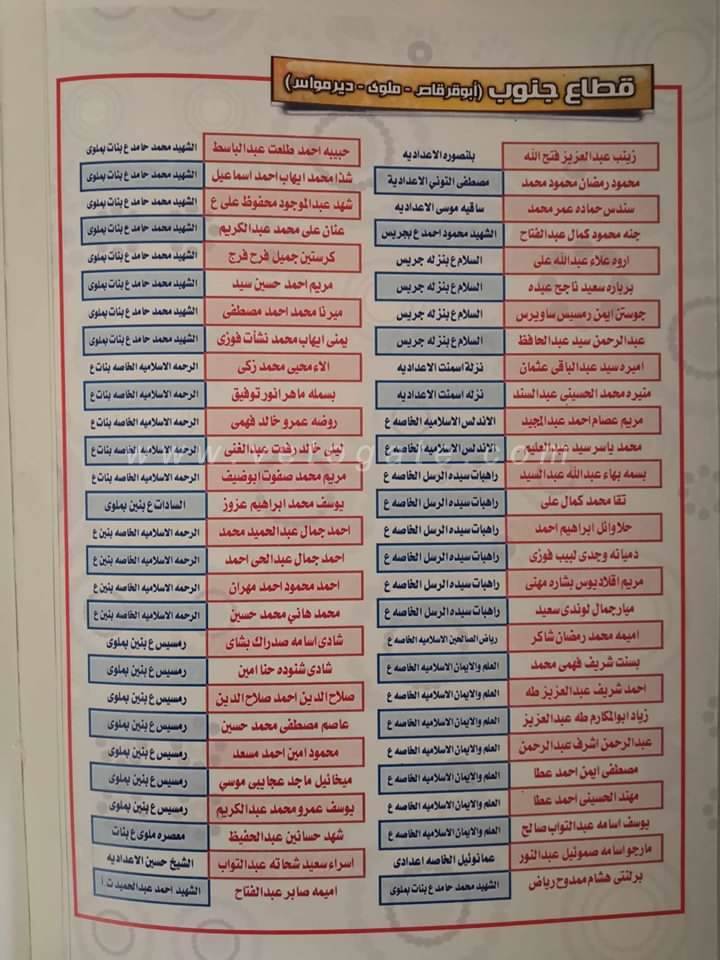 قطاع جنوب (أبوقرقاص - ملوى - ديرمواس)
زينب عبدالعزيز فتح الله بلنصوره الاعداديه
محمود رمضان محمود محمد مصطفى التوني الاعدادية
سندس حماده عمر محمد ساقيه موسى الاعداديه
جنه محمود كمال عبدالفتاح الشهيد محمود احمد ع بجريس
اروه علاء عبدالله على السلام ع بنزله جريس
برباره سعيد ناجح عبده السلام ع بنزله جريس
جوستن ايمن رمسيس ساويرس السلام ع بنزله جريس
عبدالرحمن سيد عبدالحافظ السلام ع بنزله جريس
اميره سيد عبدالباقى عثمان نزلة اسمنت الاعداديه
منيره محمد الحسينى عبدالسند نزله اسمنت الاعداديه
مريم عصام احمد عبدالمجيد الاندلس الاسلاميه الخاصه ع
محمد ياسر سيد عبدالعليم الاندلس الاسلاميه الخاصه ع
بسمه بهاء عبدالله عبدالسيد راهبات سيده الرسل الخاصه ع
تقا محمد كمال على راهبات سيده الرسل الخاصه ع
حلا وائل ابراهيم احمد راهبات سيده الرسل الخاصه ع
دميانه وجدى لبيب فوزى راهبات سيده الرسل الخاصه ع
مريم اقلاديوس بشاره مهنى راهبات سيده الرسل الخاصه ع
ميار جمال لوندى سعيد راهبات سيده الرسل الخاصه ع
اميمه محمد رمضان شاكر رياض الصالحين الاسلاميه الخاصه ع
بسنت شريف فهمى محمد العلم والايمان الاسلاميه الخاصه ع
احمد شريف عبدالعزيز طه العلم والايمان الاسلاميه الخاصه ع
زياد ابوالمكارم طه عبدالعزيز العلم والايمان الاسلاميه الخاصه ع
عبدالرحمن اشرف عبدالرحمن العلم والايمان الاسلاميه الخاصه ع
مصطفى ايمن احمد عطا العلم والايمان الاسلاميه الخاصه ع
مهند الحسينى احمد عطا العلم والايمان الاسلاميه الخاصه ع
يوسف اسامه عبدالتواب صالح العلم والايمان الاسلاميه الخاصه ع
مارجو اسامه صموئيل عبدالنور عمانوئيل الخاصه اعدادى
برلنتى هشام ممدوح رياض الشهيد محمد حامد ع بنات بملوى
حبيبه احمد طلعت عبدالباسط الشهيد محمد حامد ع بنات بملوى
شذا محمد ايهاب احمد اسماعيل الشهيد محمد حامد ع بنات بملوى
شهد عبدالموجود محفوظ على ع الشهيد محمد حامد ع بنات بملوى
عنان على محمد عبدالكريم الشهيد محمد حامد ع بنات بملوى
كرستين جميل فرح فرج الشهيد محمد حامد ع بنات بملوى
مريم احمد حسين سيد الشهيد محمد حامد ع بنات بملوى
ميرنا محمد احمد مصطفى الشهيد محمد حامد ع بنات بملوى
يمنى ايهاب محمد نشأت فوزى الشهيد محمد حامد ع بنات بملوى
الاء محيى محمد زكى الرحمه الاسلاميه الخاصه بنات ع
بسمله ماهر انور توفيق الرحمه الاسلاميه الخاصه بنات ع
روضه عمرو خالد فهمى الرحمه الاسلاميه الخاصه بنات ع
ليلى خالد رفعت عبدالغنى الرحمه الاسلاميه الخاصه بنات ع
مريم محمد صفوت ابوضيف الرحمه الاسلاميه الخاصه بنات ع
يوسف محمد ابراهيم عزوز السادات ع بنين بملوى
احمد جمال عبدالحميد محمد الرحمه الاسلاميه الخاصه بنين ع
احمد جمال عبدالحى احمد الرحمه الاسلاميه الخاصه بنين ع
احمد محمود احمد مهران الرحمه الاسلاميه الخاصه بنين ع
محمد هاني محمد حسين الرحمه الاسلاميه الخاصه بنين ع
شادى اسامه صدراك بشاى رمسيس ع بنين بملوى
شادى شنوده حنا امين رمسيس ع بنين بملوى
صلاح الدين احمد صلاح الدين رمسيس ع بنين بملوى
عاصم مصطفى محمد حسين رمسيس ع بنين بملوى
محمود امين احمد مسعد رمسيس ع بنين بملوى
ميخائيل ماجد عجايبى موسي رمسيس ع بنين بملوى
يوسف عمرو محمد عبدالكريم رمسيس ع بنين بملوى
شهد حسانين عبدالحفيظ معصره ملوى ع بنات
اسراء سعيد شحاته عبدالتواب الشيخ حسين الاعداديه
اميمه صابر عبدالفتاح الشهيد احمد عبدالحميد ت. أ
www.vetogate.com